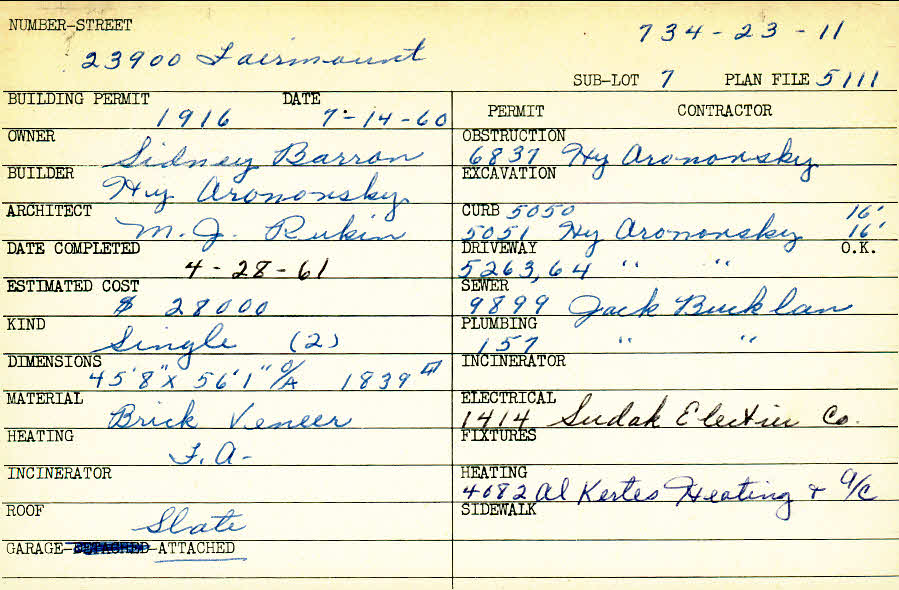 NUMBER-STREET
734-23-11
23900 Fairmount
SUB-LOT 7 PLAN FILE 5111
BUILDING PERMIT DATE
1916 7-14-60
OWNER
Sidney Barron
BUILDER
Hy Arononsky
ARCHITECT
M. J. Rukin
DATE COMPLETED
4-28-61
ESTIMATED COST
$ 28000
KIND
Single (2)
DIMENSIONS
45'8" X 56'1" O/A 1839
MATERIAL
Brick Veneer
HEATING
F.A-
INCINERATOR
ROOF
Slate
GARAGE-DETACHED-ATTACHED
PERMIT CONTRACTOR
OBSTRUCTION
6837 Hy Arononsky
EXCAVATION
CURB 5050 16'
5051 Hy Arononsky 16'
DRIVEWAY O.K.
5263,64 " "
SEWER
9899 Jack Bucklan
PLUMBING
157 " "
INCINERATOR
ELECTRICAL
1414 Sudak Electric Co.
FIXTURES
HEATING
4082 Al Kertes Heating + A/C
SIDEWALK